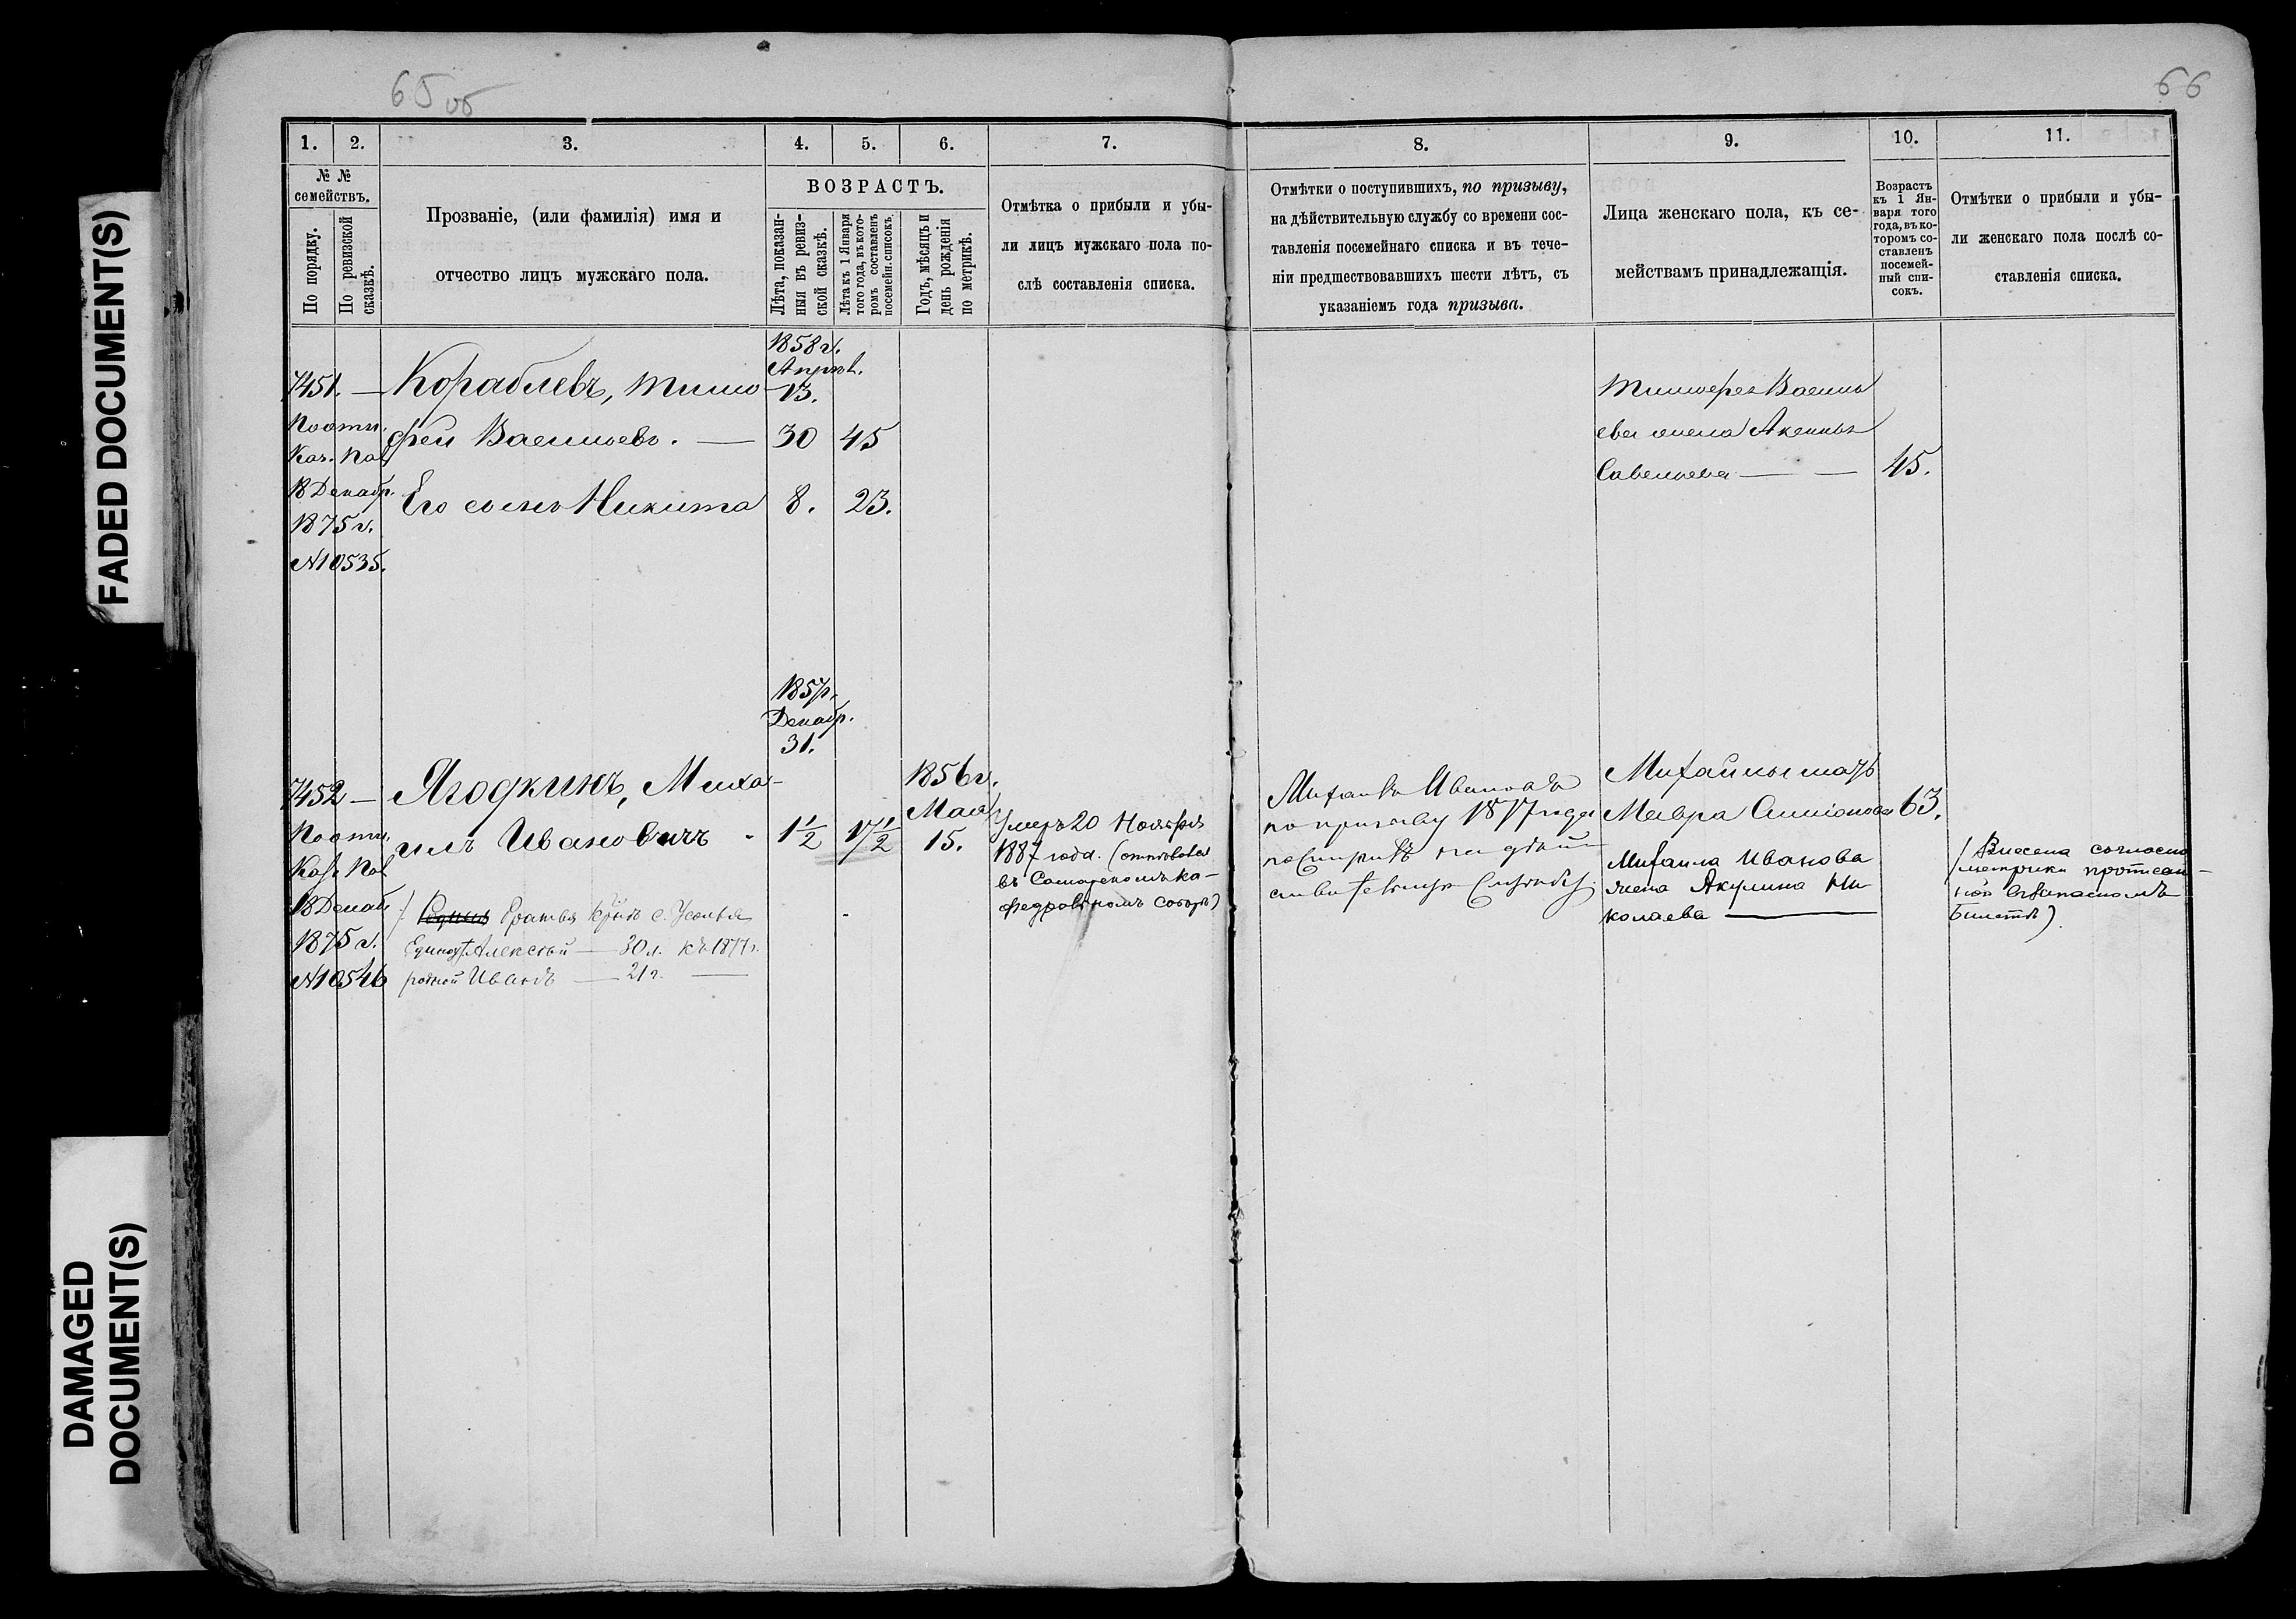 65 об
66
FADED DOCUMENT(S)
DAMAGED
DOCUMENT(S)
1.
2.
3.
4.
5.
6.
7.
8.
9.
10.
11.
№ №
семействъ.
По порядку.
По ревизской
сказкѣ.
Прозваніе, (или фамилія) имя и
отчество лицъ мужскаго пола.
ВОЗРАСТЪ.
Лѣта, показан-
ныя въ ревиз-
ской сказкѣ.
Лѣта къ 1 Января
того года, въ кото-
ромъ составленъ
посемейн. списокъ.
Годъ, мѣсяцъ и
день рожденія
по метрикѣ.
Отмѣтка о прибыли и убы-
ли лицъ мужскаго пола по-
слѣ составленія списка.
Отмѣтки о поступившихъ, по призыву,
на дѣйствительную службу со времени сос-
тавленія посемейнаго списка и въ тече-
ніи предшествовавшихъ шести лѣтъ, съ
указаніемъ года призыва.
Лица женскаго пола, къ се-
мействамъ принадлежащія.
Возрастъ
къ 1 Ян-
варя того
года, въ ко-
торомъ со-
ставленъ
посемей-
ный спи-
сокъ.
Отмѣтки о прибыли и убы-
ли женскаго пола послѣ со-
ставленія списка.
7451. —
По отн.
Каз. Пал
18 Декабр.
1875 г.
№ 10535.
Кораблевъ, Тимо-
фей Васильевъ. —
Его сынъ Никита
1858 г.
Апрѣл.
13.
30
45
8.
23.
Тимофея Василь
ева жена Аксинья
Савельева — —
45.
7452 —
По отн.
Каз. Пал
18 Декаб
1875 г.
№ 10546
Ягодкинъ, Миха-
илъ Ивановичъ
Братья Крѣпъ с. Усолья
Единоут Алексѣй — 30 л. къ 1877 г.
родной Иванъ — 21 г. —
1857 г.
Декабр.
31.
1 1/2
17 1/2
1856 г.
Мая
15.
Умеръ 20 Ноября
1887 года. (отпѣвался
въ Самарскомъ ка-
федральномъ соборѣ)
Михаилъ Ивановъ
по призыву 1877 года
поступилъ на дѣйст
вительную службу.
Михаилы мать
Мавра Симіонова
63.
Михаила Иванова
жена Акулина Ни
колаева —
(Внесена согласно
метрики прописан-
ной въ запасномъ
билетѣ)